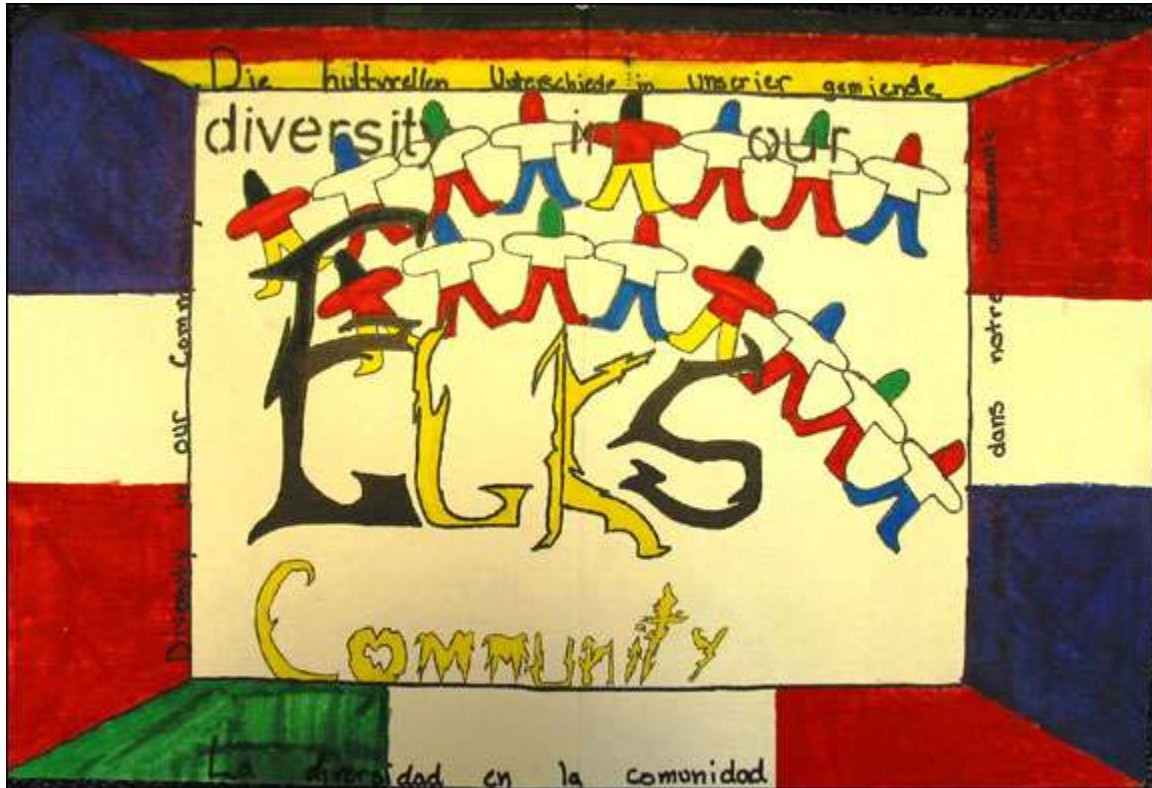 Die kulturellen Unterschiede in unserier gemiende
diversity in our
Elks
Community
Diversity in our
dans notre communauté
La diversidad en la comunidad